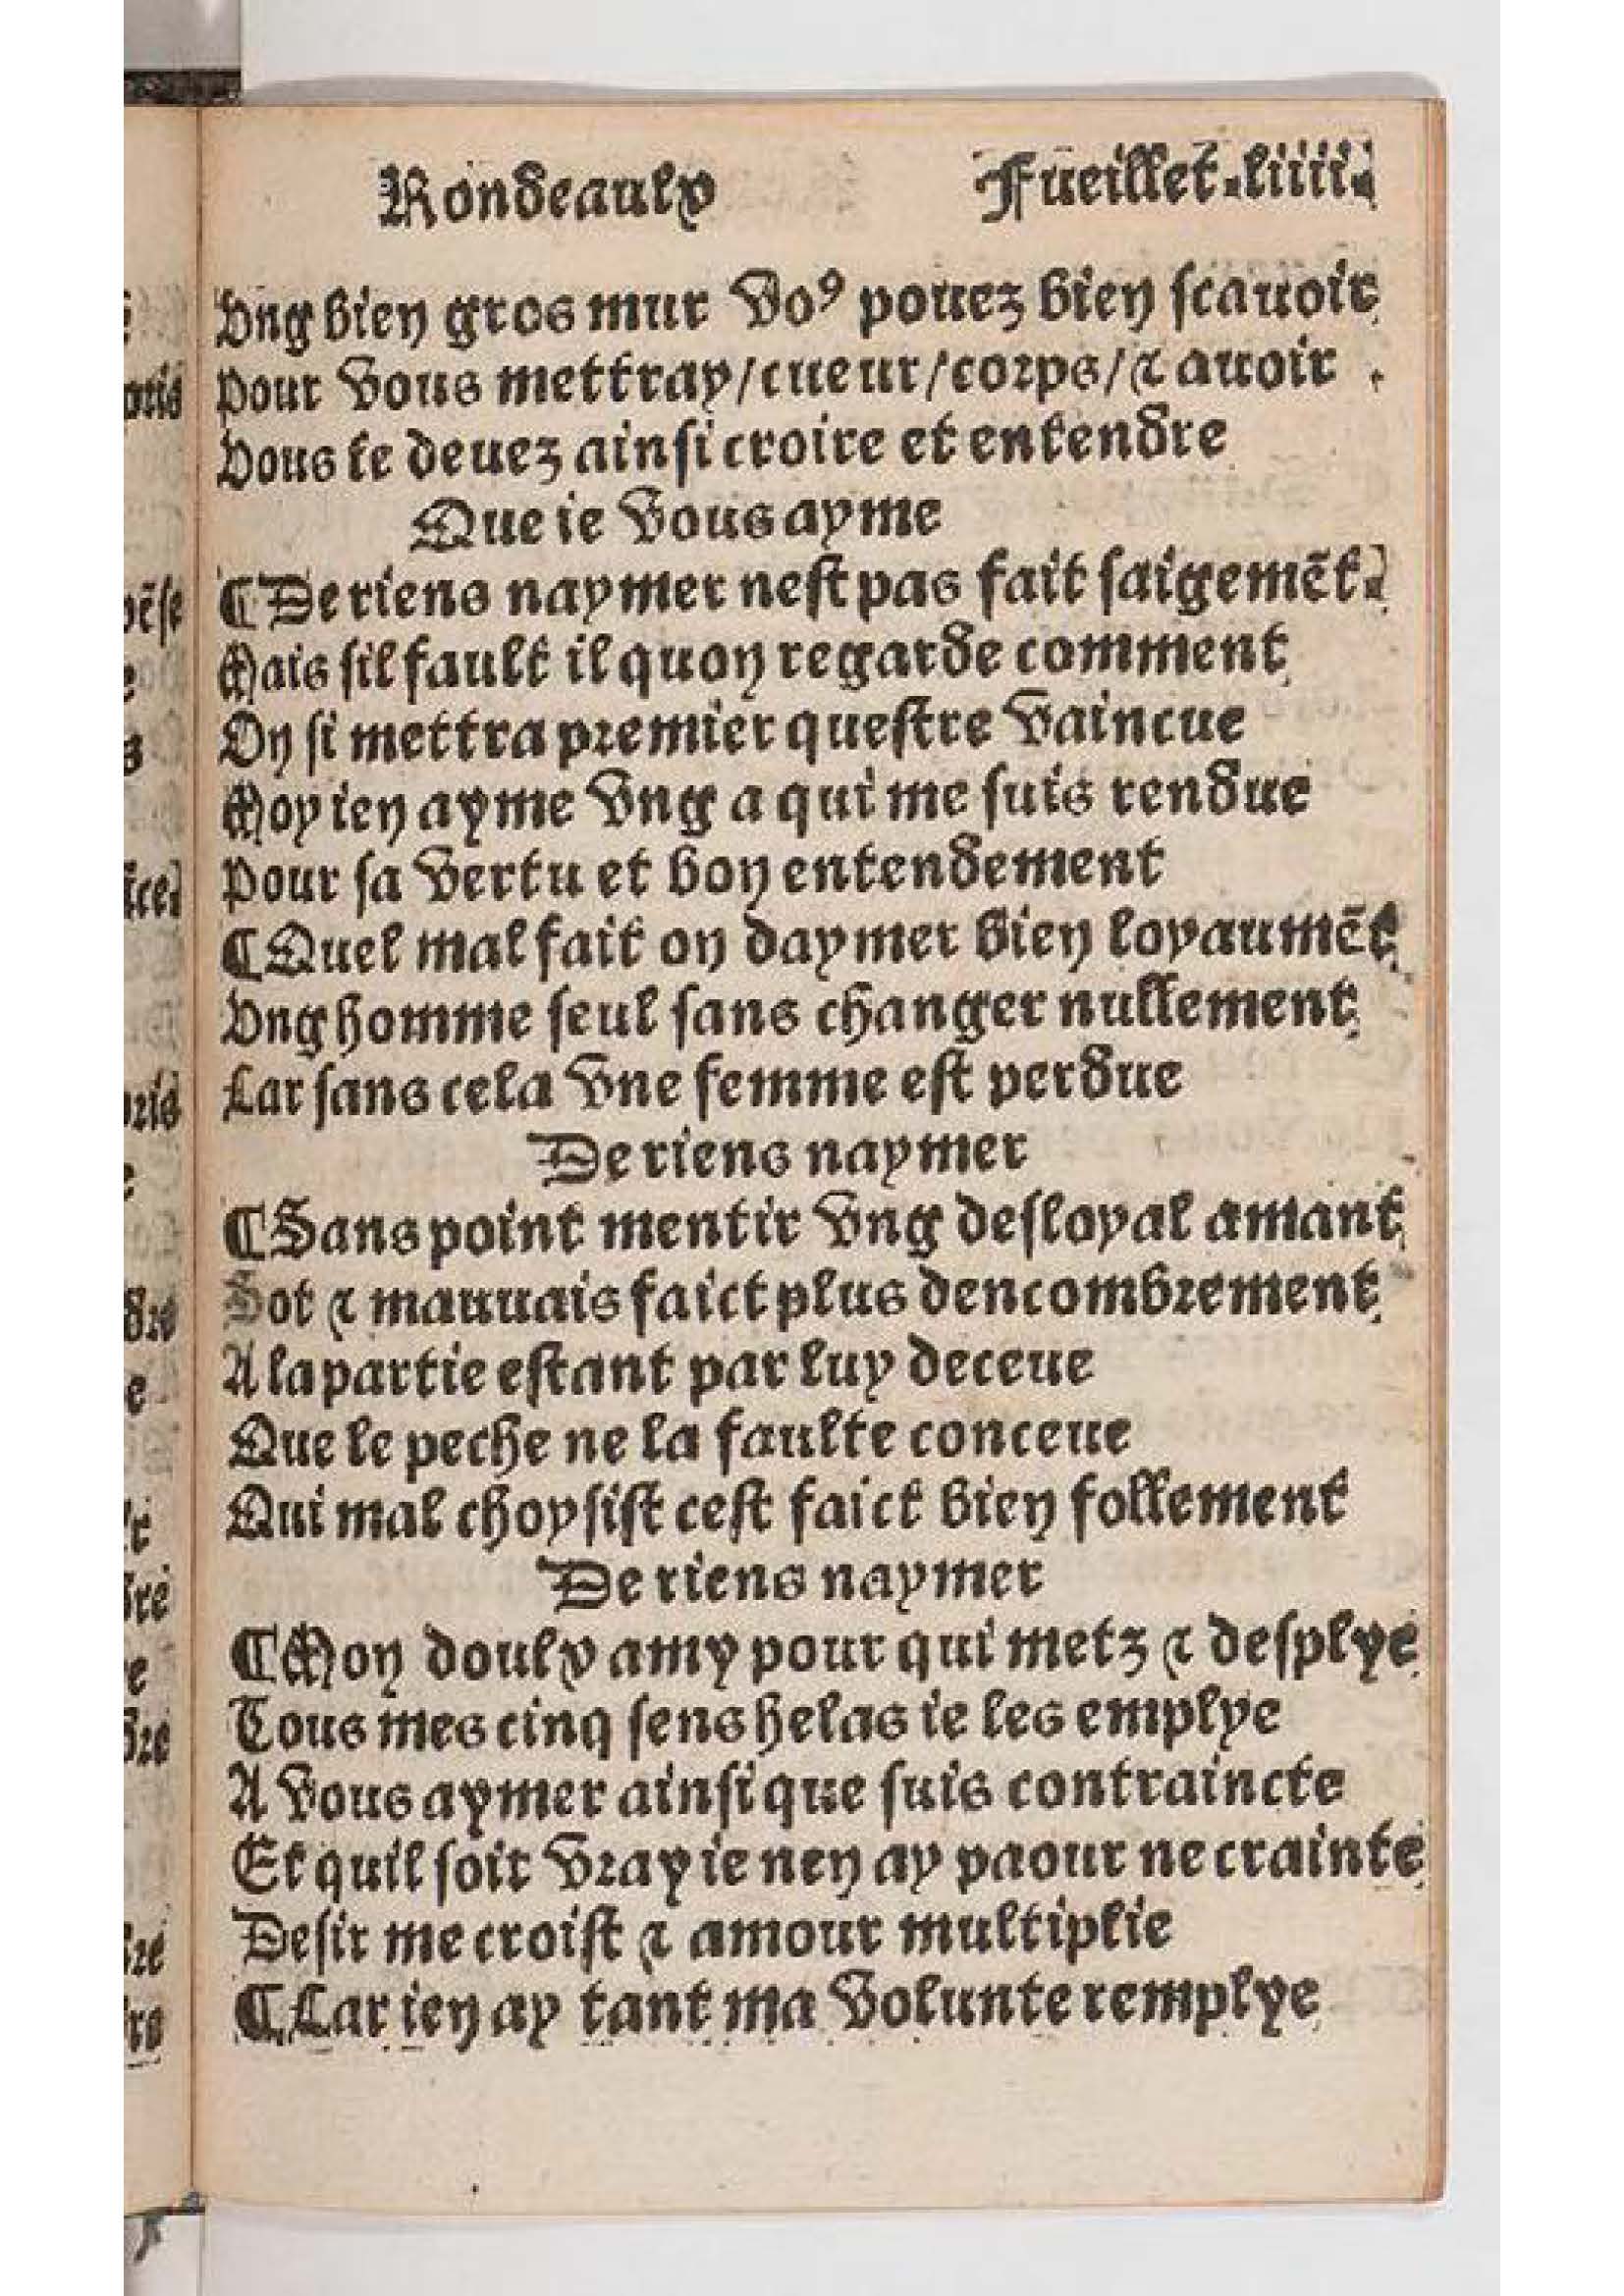 Rondeaulx Fueillet.liiii.
Vng bien gros mur Voꝰ pouez bien scauoir
Pour Vous mettray/cueur/corps/⁊ auoir
Vous le deuez ainsi croire et entendre
Que ie Vous ayme
¶De riens naymer nest pas fait saigemẽt.
Mais sil fault il quon regarde comment
On si mettra premier questre Vaincue
Moy ien ayme Vng a qui me suis rendue
Pour sa Vertu et bon entendement
¶Quel mal fait on daymer bien loyaumẽt
Vng homme seul sans changer nullement
Car sans cela Vne femme est perdue
De riens naymer
¶Sans point mentir Vng desloyal amant
Sot ⁊ mauuais faict plus dencombrement
A la partie estant par luy deceue
Que le peche ne la faulte conceue
Qui mal choysist cest faict bien follement
De riens naymer
¶Mon doulx amy pour qui metz ⁊ desplye
Tous mes cinq sens helas ie les emplye
A Vous aymer ainsi que suis contraincte
Et quil soit Vray ie nen ay paour ne crainte
Desir me croist ⁊ amour multiplie
¶Car ien ay tant ma Volunte remplye